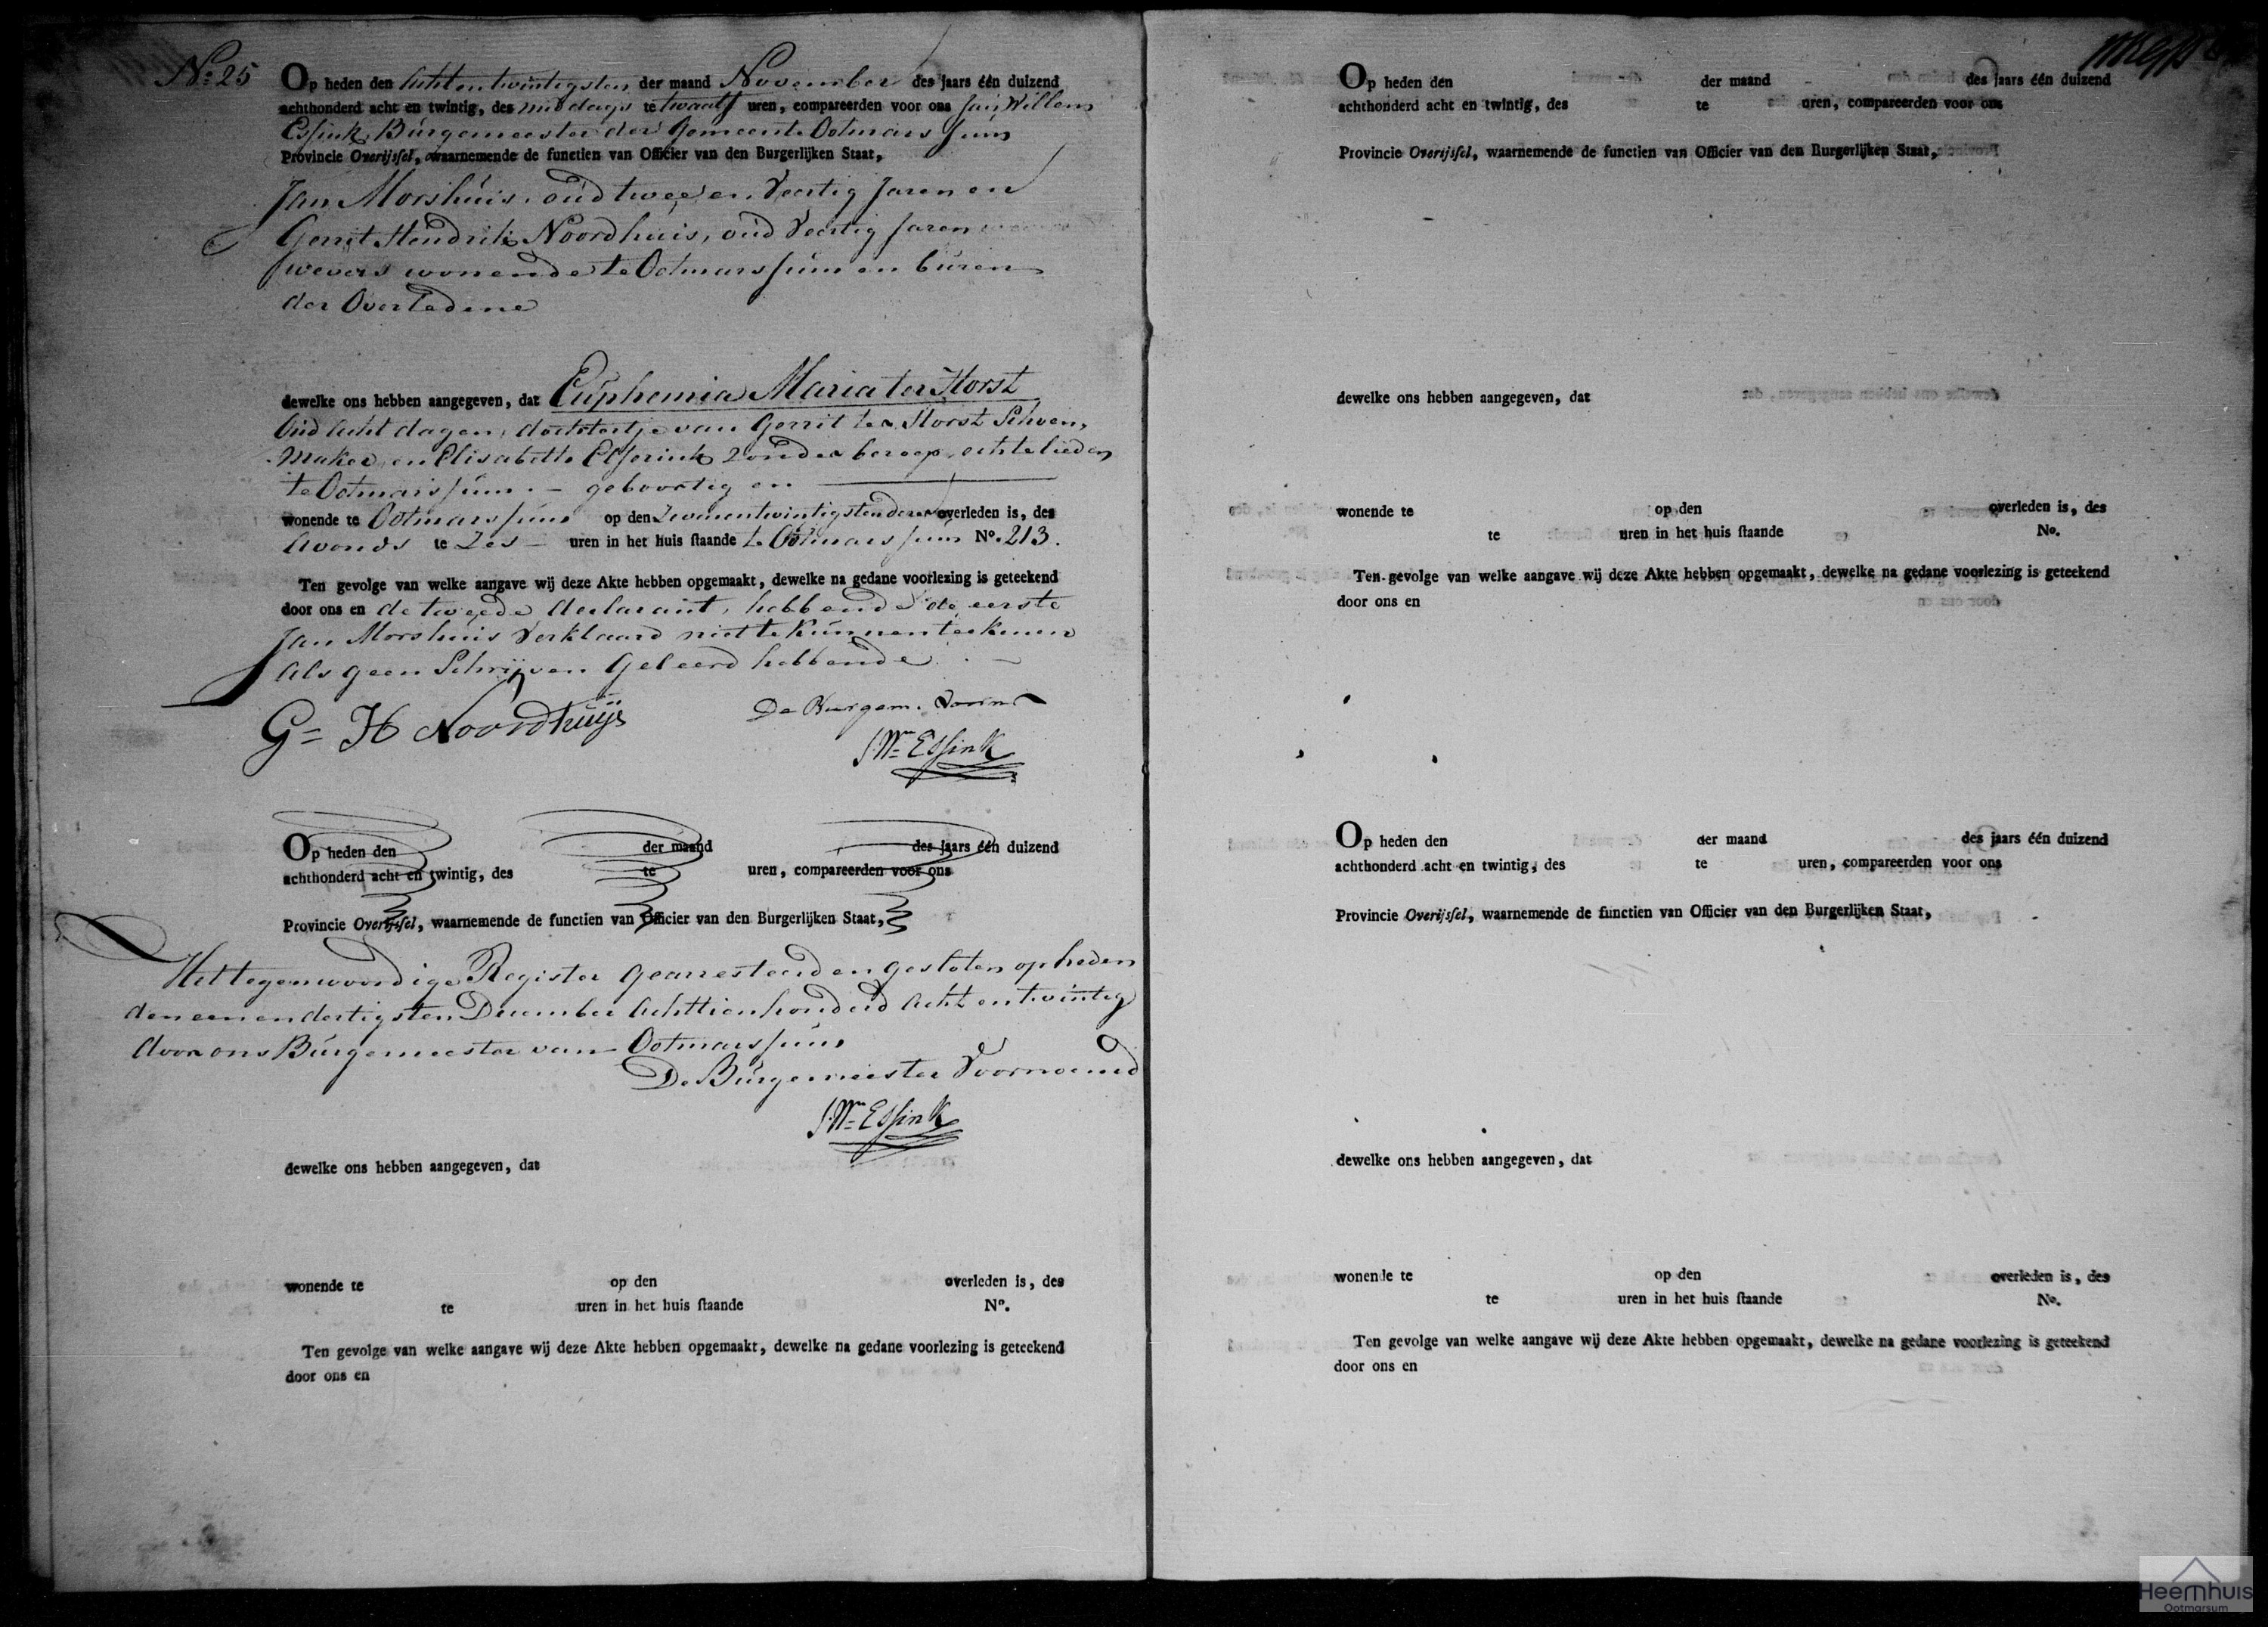 No 25 Op heden den Achtentwintigsten der maand November des jaars één duizend
achthonderd acht en twintig, des middags te twaalf uren, compareerden voor ons Jan Willem
Essink, Burgemeester der Gemeente Ootmarssum
Provincie Overijssel, waarnemende de functien van Officier van den Burgerlijken Staat,
Jan Morshuis, oud twee en Veertig Jaren en
Gerrit Hendrik Noordhuis, oud Veertig Jaren
wevers wonende te Ootmarssum en buren
der Overledene
dewelke ons hebben aangegeven, dat Euphemia Maria ter Horst
Oud Acht dagen, dochtertje van Gerrit ter Horst Schoen,
maker, en Elisabeth Elferink zonder beroep, echtelieden
te Ootmarssum. — geboortig en
wonende te Ootmarssum op den Zevenentwintigsten dezer overleden is, des
Avonds te Zes — uren in het huis staande te Ootmarssum No. 213.
Ten gevolge van welke aangave wij deze Akte hebben opgemaakt, dewelke na gedane voorlezing is geteekend
door ons en de tweede declarant, hebbende de eerste
Jan Morshuis Verklaard niet te kunnen teekenen
Als geen Schrijven Geleerd hebbende. —
G= H Noordhuijs
De Burgem. Voorn
J. Wm= Essink
Op heden den der maand des jaars één duizend
achthonderd acht en twintig, des te uren, compareerden voor ons
Provincie Overijssel, waarnemende de functien van Officier van den Burgerlijken Staat,
Het tegenwoordige Register gearresteerd en gesloten op heden
den een en dertigsten December Achttienhonderd Acht en twintig
door ons Burgemeester van Ootmarssum
De Burgemeester Voornoemd
J. Wm= Essink
dewelke ons hebben aangegeven, dat
wonende te op den overleden is, des
te uren in het huis staande No.
Ten gevolge van welke aangave wij deze Akte hebben opgemaakt, dewelke na gedane voorlezing is geteekend
door ons en
Op heden den der maand des jaars één duizend
achthonderd acht en twintig, des te uren, compareerden voor ons
Provincie Overijssel, waarnemende de functien van Officier van den Burgerlijken Staat,
dewelke ons hebben aangegeven, dat
wonende te op den overleden is, des
te uren in het huis staande No.
Ten gevolge van welke aangave wij deze Akte hebben opgemaakt, dewelke na gedane voorlezing is geteekend
door ons en
Op heden den der maand des jaars één duizend
achthonderd acht en twintig, des te uren, compareerden voor ons
Provincie Overijssel, waarnemende de functien van Officier van den Burgerlijken Staat,
dewelke ons hebben aangegeven, dat
wonende te op den overleden is, des
te uren in het huis staande No.
Ten gevolge van welke aangave wij deze Akte hebben opgemaakt, dewelke na gedane voorlezing is geteekend
door ons en
Heemhuis
Ootmarsum